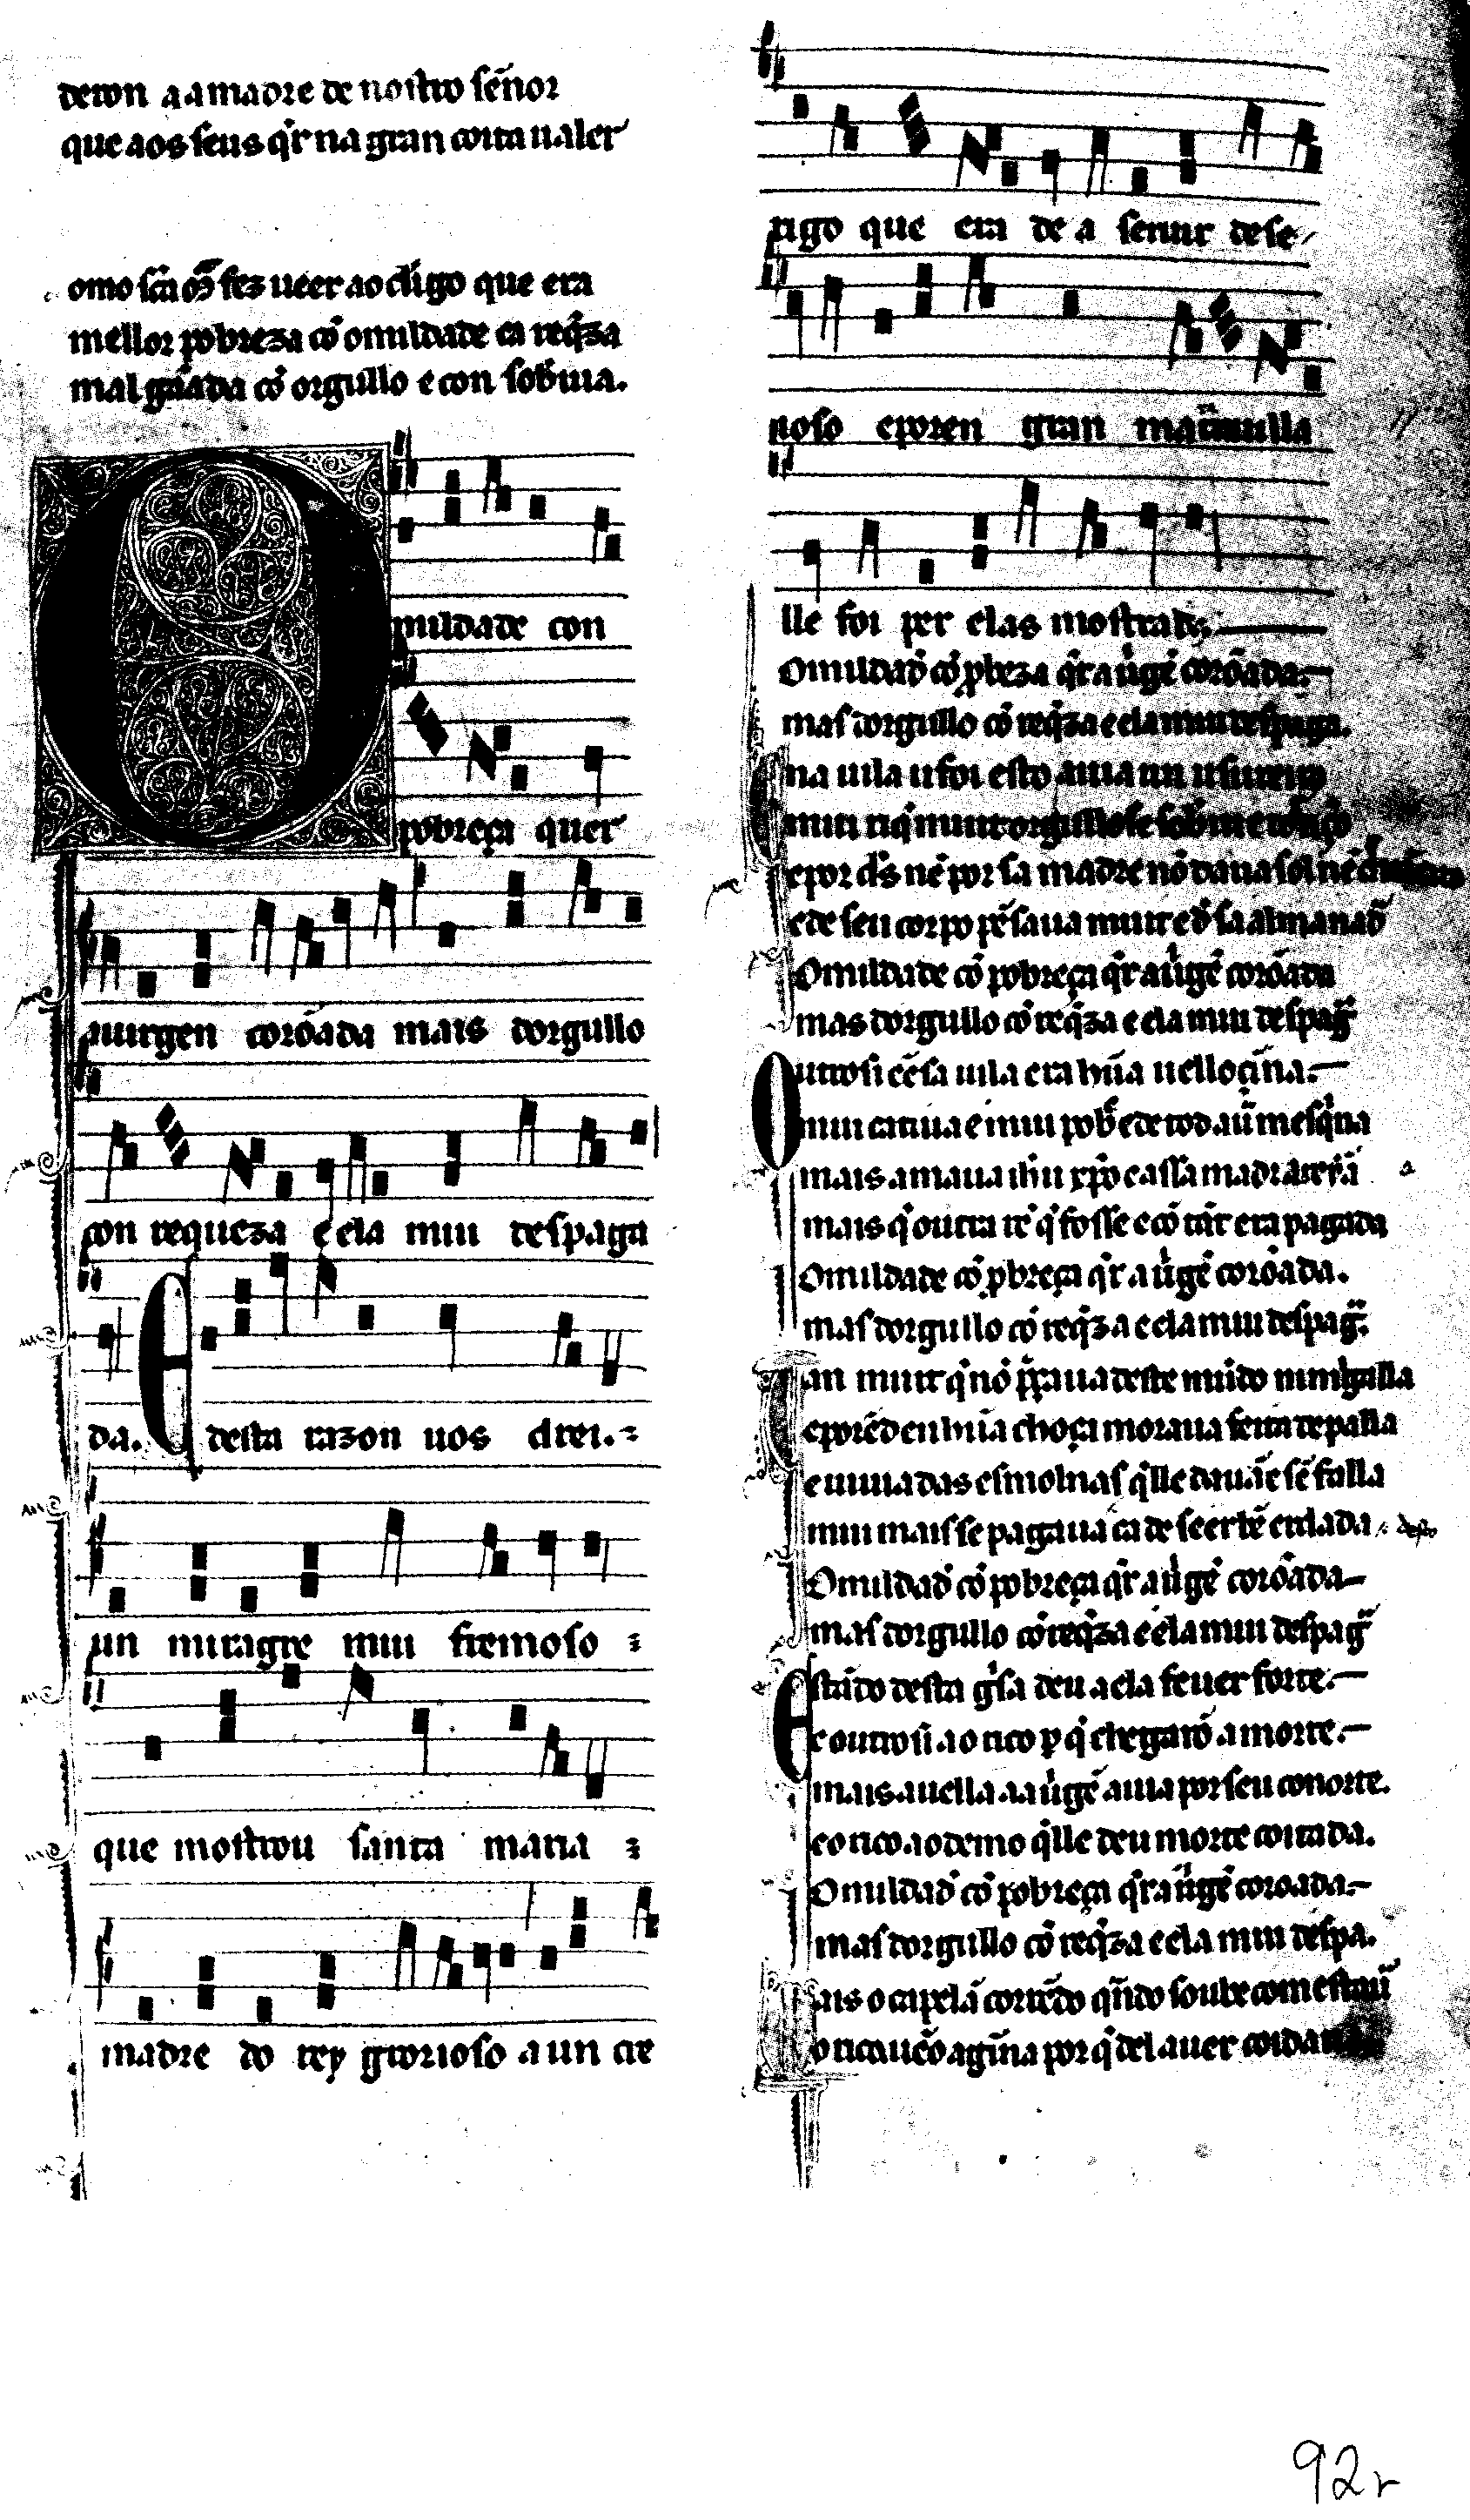 deron a a madre de nostro sẽnor
que aos seus q̇r na gran coita ualer
omo sc̃a m̃ fez ueer ao cl̃igo que era
mellor pobreza cõ omildade ca req̇za
mal gãada cõ orgullo e con sob̃uia.
Omildade con
pobreça quer
auirgen corõada mais dorgullo
con requeza e ela mui despaga
da. E desta razon uos direi.
un miragre mui fremoso
que mostrou santa maria
madre do rey grorioso a un cre
rigo que era de a seruir dese
noso eporen gran marauilla
lle foi per elas mostrada
Omildad̃ cõ pbreza q̇r a ũigẽ corõada.
mas dorgullo cõ req̇za e ela mui despaga.
na uila u foi esto auia un usureiro
mui riq̇ muit orgullose sob̃uie
epor d̃s nẽ por sa madre nõ daua sol nẽ
ede seu corpo pẽsaua muit e d̃ sa alma nad̃
Omildade cõ pobreça q̇r a ũigẽ corõada
mas dorgullo cõ req̇za e ela mui despag̃
Outrosi eẽsa uila era hũa uelloçĩna.
mui catiua e mui pob̃ e de tod auũ mesq̇na
mais amaua ih̃u xp̃o e assa madr
mais q̇ outra rẽ q̇ fosse e cõ tãt era pagada
Omildade cõ pbreça q̇r a ũigẽ corõada.
mas dorgullo cõ req̇za e ela mui despag̃.
Tan muit q̇ nõ p̃çaua deste mũdo nimigalla
eporẽ den hũa choça moraua feita de palla
e uiuia das esmolnas q̇ lle dauã e sẽ falla
mui mais se pagaua ca de seer bẽ erdada
Omildad̃ cõ pobreça q̇r a ũigẽ corõada
mas dorgullo cõ req̇za e ela mui despag̃
Estãdo desta g̃sa deu a ela feuer forte.
e outrosi ao rico p q̇ chegarõ a morte.
mais a uella aa ũigẽ auia por seu conorte.
eo rico ao demo q̇ lle deu morte coitada.
Omildad̃ cõ pobreça q̇r a ũigẽ coroada.
mas dorgullo cõ req̇za e ela mui despa.
ais o capelã corrẽdo qñdo soube com estau
o rico uẽo agĩna por q̇ del auer coidaua
92r